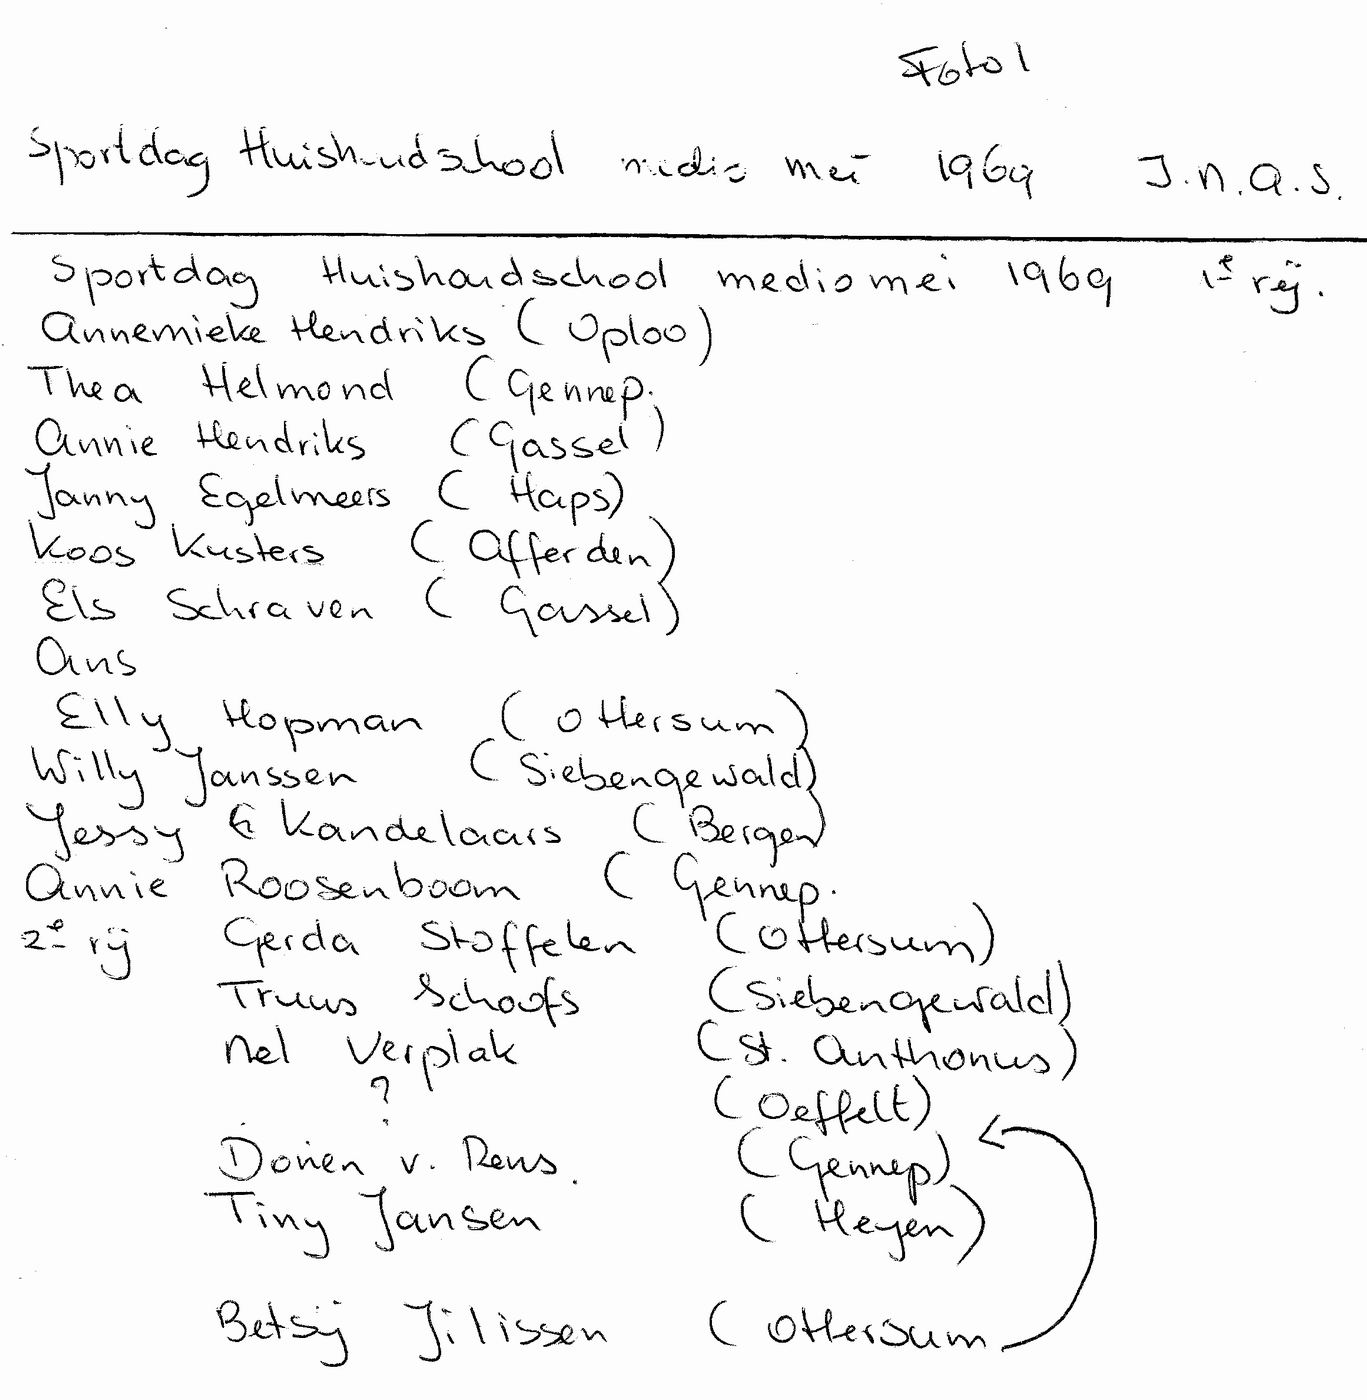 Foto 1
Sportdag Huishoudschool medio mei 1969 J.N.A.S.
Sportdag Huishoudschool medio mei 1969 1e rij.
Annemieke Hendriks (Oploo)
Thea Helmond (Gennep.
Annie Hendriks (Gassel)
Janny Egelmeers (Haps)
Koos Kusters (Afferden)
Els Schraven (Gassel)
Ans
Elly Hopman (Ottersum)
Willy Janssen (Siebengewald)
Jessy Kandelaars (Bergen)
Annie Roosenboom (Gennep.
2e rij Gerda Stoffelen (Ottersum)
Truus Schoofs (Siebengewald)
Nel Verplak (St. Anthonus)
? (Oeffelt)
Dorien v. Rens. (Gennep)
Tiny Jansen (Heyen)
Betsij Jilissen (Ottersum